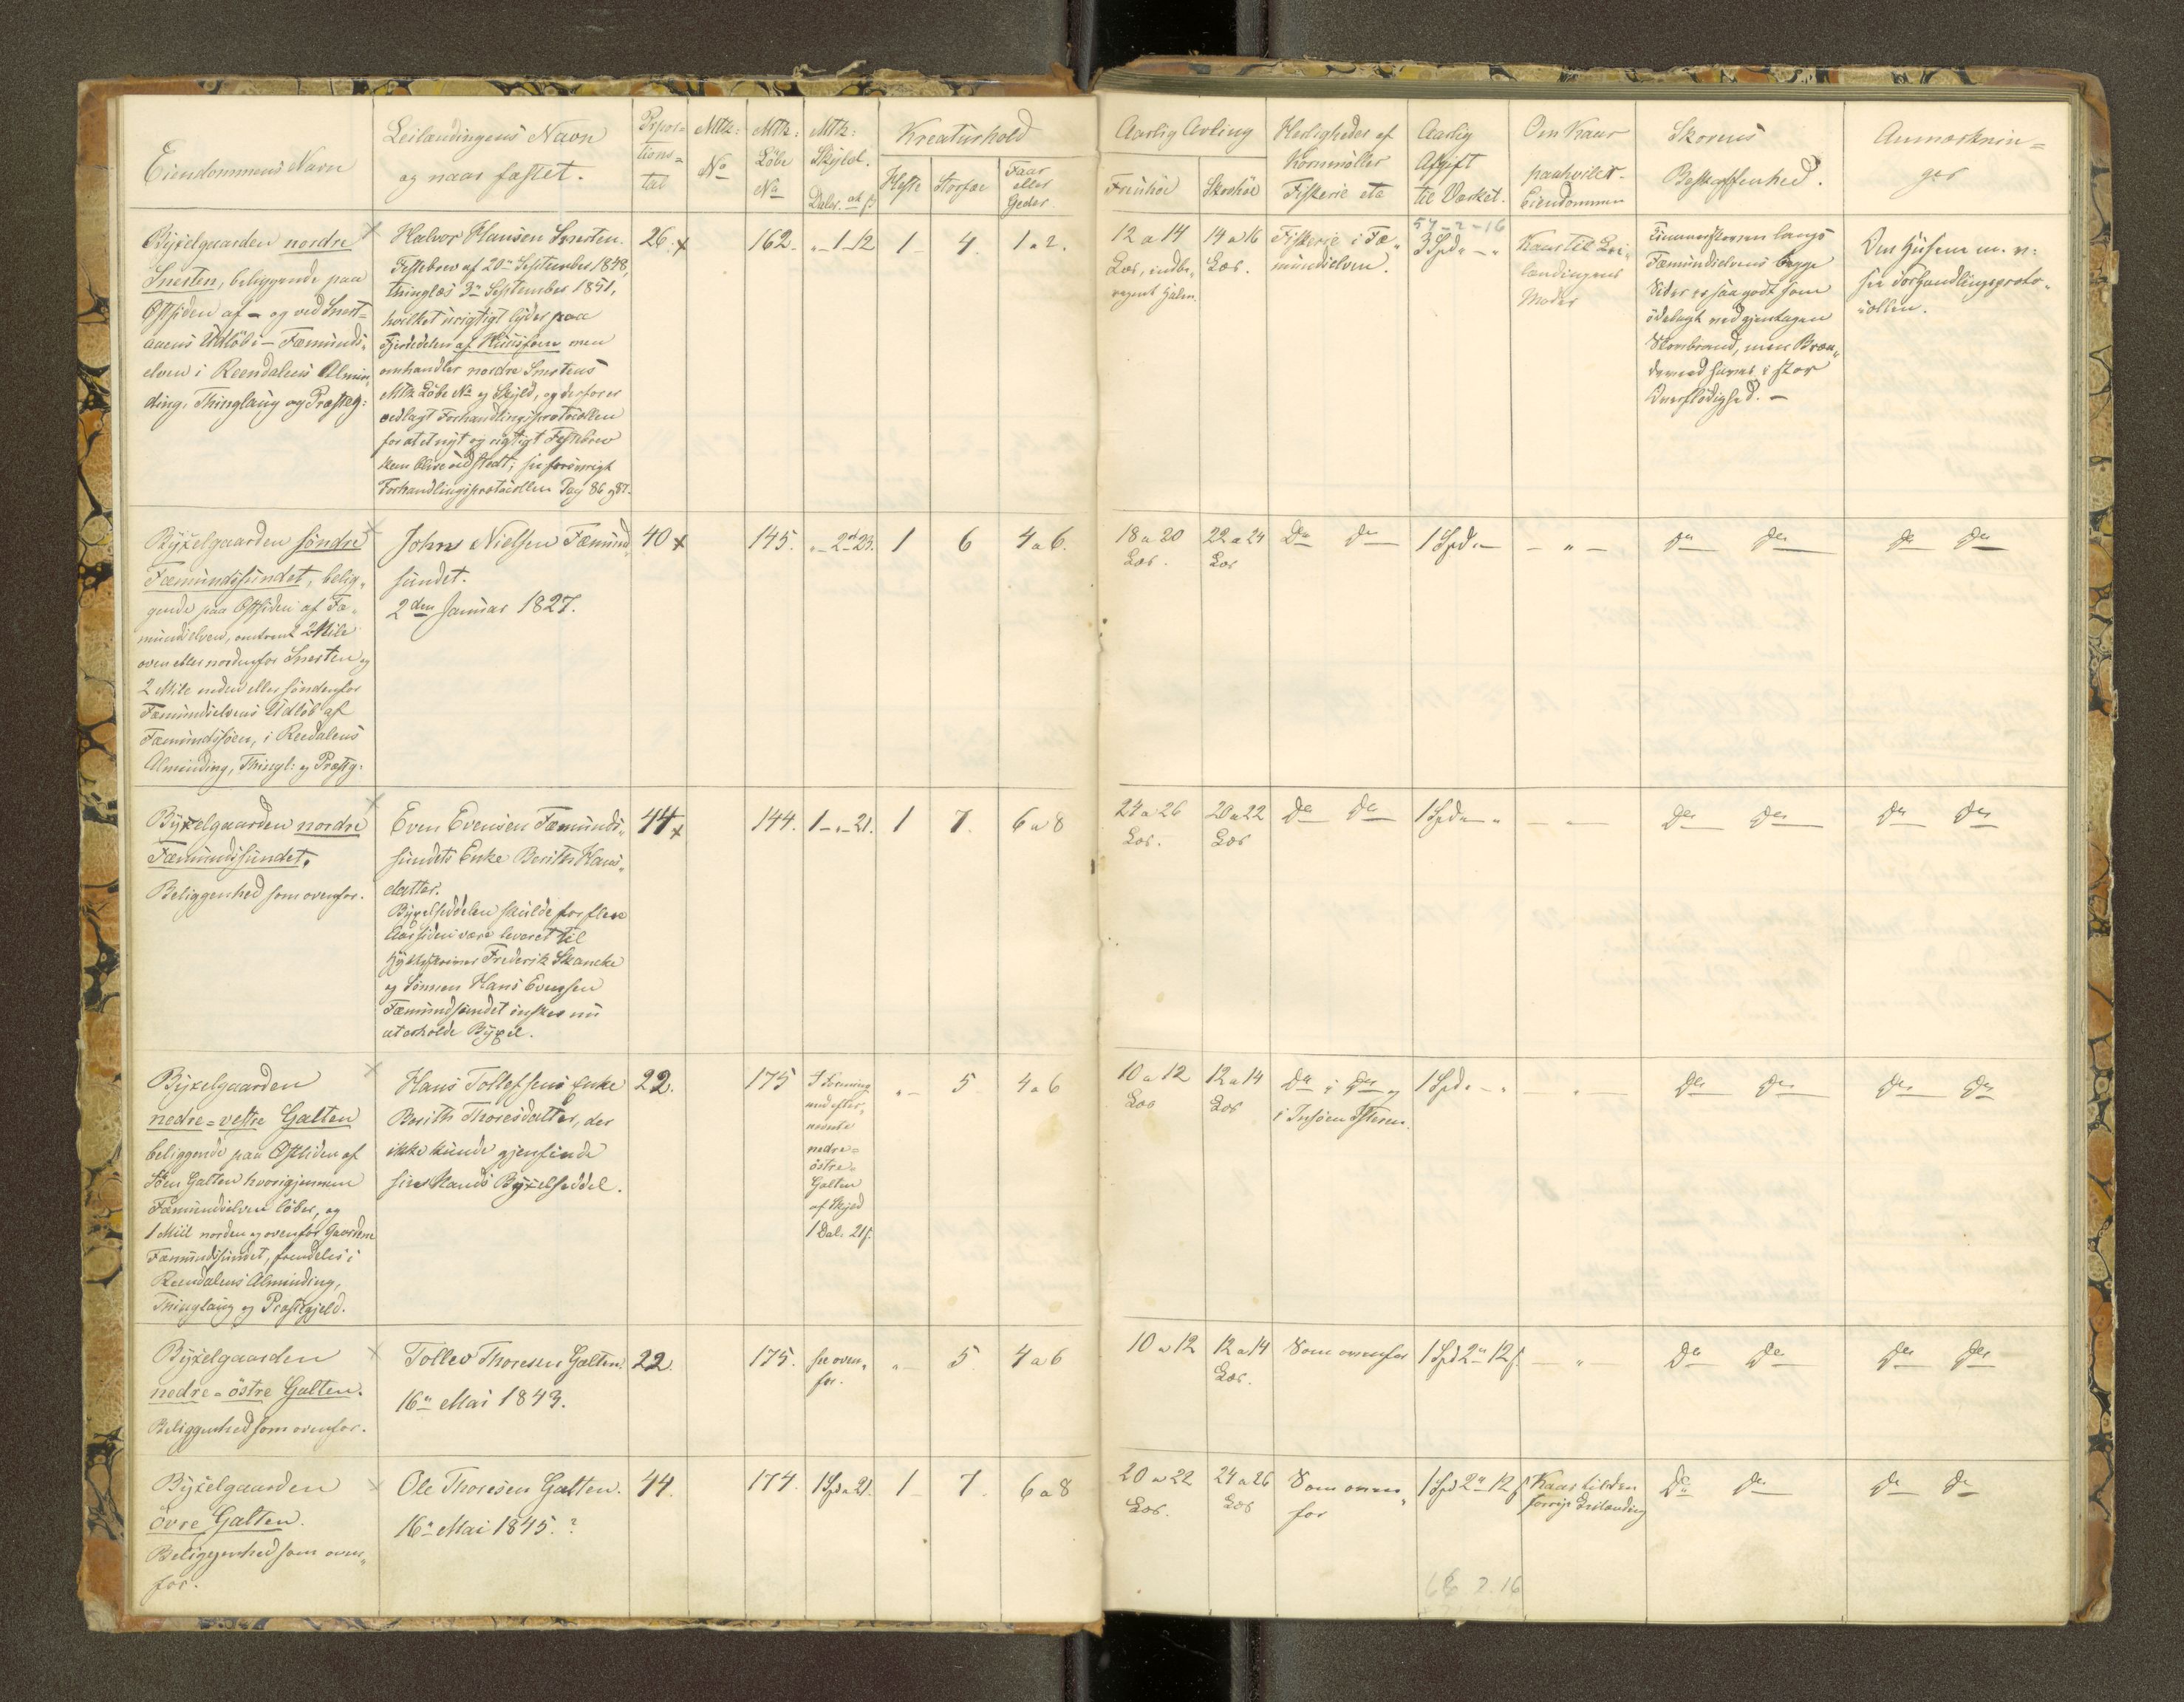 Eiendommens Navn
Leilændingens Navn
og naar fæstet.
Propor=
tions=
tal
Mtk:
No
Mtk:
Löbe
No
Mtk:
Skyld.
Daler. ort ß
Kreaturhold
Heste
Storfæ
Faar
eller
Geder.
Aarlig Avling
Fröehöe
Skovhöe
Herligheder af
Kornmøller
Fiskerie etc
Aarlig
Afgift
til Værket.
Om Kaar
paahviler
Eiendommen
Skovens
Beskaffenhed.
Anmærknin=
ger
Byxelgaarden nordre
Snerten, beliggende paa
Østsiden af - og ved Snert=
aaens Udlöb i - Fæmunds,
elven i Reendalens Almin,
ding, Thinglaug og Præsteg:
Halvor Hansen Snerten.
Festebrev af 20de September 1848,
thinglæs 3de September 1851,
hvilket urigtigt lyder paa
Fjerdedelen af men
omhandler nordre Snertens
Mtk Löbe No og Skyld, og derfor er
vedlagt Forhandlingsprotocollen
for at et nyt og rigtigt Festebrev
kan blive udstedt; see forövrigt
Forhandlingsprotocollen Pag 86 og 87.
26. x
162.
" - 1 - 12
1
4
1 a 2.
12 a 14
Læs, indbe,
regnet Halm.
14 a 16
Læs.
Fiskerie i Fæ,
mundelven.
57-2-16
3 Spd. - "
Kaar til Lei,
lændingens
Moder
Tömmerskoven langs
Fæmundelvens begge
Sider er saa godt som
ödelagt ved gjentagen
Skovbrand, men Bræn,
deved haves i stor
Overflödighed. -
Om Husene m. v:
see Forhandlingsproto,
collen.
Byxelgaarden söndre
Fæmundsundet, belig,
gende paa Østsiden af Fæ,
mundelven, omtrent 2 Mile
oven eller nordenfor Snerten og
2 Mile neden eller söndenfor
Fæmundelvens Udlöb af
Fæmundsöen, i Reendalens
Alminding, Thingl: og Præsteg:
John Nielsen Fæmund,
sundet.
2den Januar 1827.
40 x
145.
" - 2 - 23.
1
6
4 a 6.
18 a 20
Læs.
22 a 24
Læs
Do Do
1 Spd. -
- " -
Do Do
Do Do
Byxelgaarden nordre
Fæmundsundet.
Beliggenhed som ovenfor.
Even Evensen Fæmund,
sundets Enke Berith Hans,
datter.
Byxelseddelen skulde for flere
Aar siden være leveret til
Hyttskriver Frederik Skancke
og Sönnen Hans Evensen
Fæmundsundet önsker nu
at erholde Byxel.
44 x
144.
1 - " - 21.
1
7.
6 a 8
24 a 26
Læs.
20 a 22
Læs
Do Do
1 Spd. - "
- " -
Do Do
Do Do
Byxelgaarden
nedre = vestre Galten
beliggende paa Østsiden af
Söen Galten hvorigjennem
Fæmundelven löber, og
1 Miil norden og ovenfor Gaardene
Fæmundsundet, fremdeles i
Reendalens Alminding,
Thinglaug og Præstegjeld.
Hans Tollefsens Enke
Berith Thoresdatter, der
ikke kunde gjenfinde
sin Mands Byxelseddel.
22.
175
I Forening
med efter,
nævnte
nedre =
östre =
Galten
af Skyld
1 Dal. 21ß.
" -
5
4 a 6
10 a 12
Læs
12 a 14
Læs
Do i Do og
i Insöen Isteren.
1 Spd. - "
- " -
Do Do
Do Do
Byxelgaarden
nedre = östre Galten.
Beliggenhed som ovenfor.
Tollev Thoresen Galten.
16de Mai 1843.
22.
175.
see oven,
for.
" -
5.
4 a 6
10 a 12
12 a 14
Læs.
Som ovenfor
1 Spd 2 " 12 ß
"
Do Do
Do Do
Byxelgaarden
övre Galten.
Beliggenhed som oven,
for.
Ole Thoresen Galten.
16de Mai 1845. ?
44.
174.
1 Spd " 21.
1
7.
6 a 8
20 a 22
Læs.
24 a 26
Læs
Som oven,
for
1 Spd 2 " 12 ß
Kaar til den
forrige Leilænding
Do Do
Do Do
66 2.16